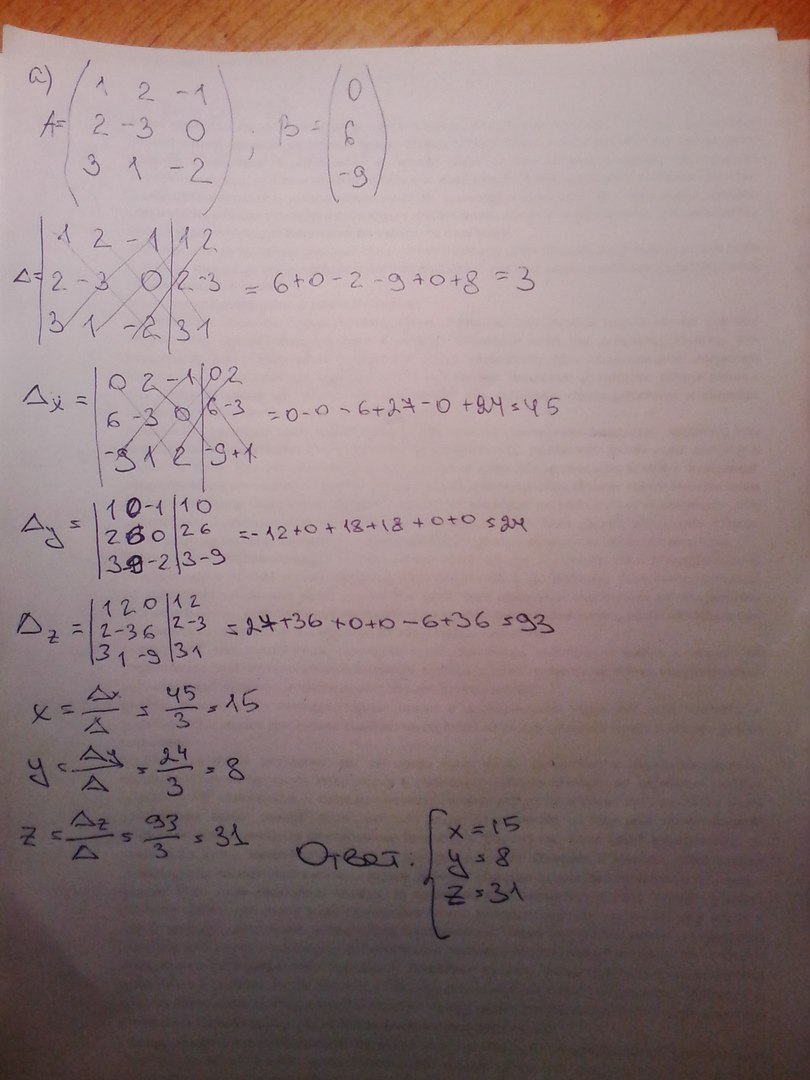 а)
A= ( 1 2 -1
2 -3 0
3 1 -2 ) ; B = ( 0
6
-9 )
Δ= | 1 2 -1 | 1 2
2 -3 0 | 2 -3
3 1 -2 | 3 1 = 6+0-2-9+0+8 = 3
Δx = | 0 2 -1 | 0 2
6 -3 0 | 6 -3
-9 1 2 | -9 +1 = 0-0-6+27-0+24=45
Δy = | 1 0 -1 | 1 0
2 6 0 | 2 6
3 -9 -2 | 3 -9 =-12+0+18+18+0+0=24
Δz = | 1 2 0 | 1 2
2 -3 6 | 2 -3
3 1 -9 | 3 1 =27+36+0+0-6+36=93
x = Δx/Δ = 45/3 = 15
y = Δy/Δ = 24/3 = 8
z = Δz/Δ = 93/3 = 31
Ответ: { x=15
y=8
z=31